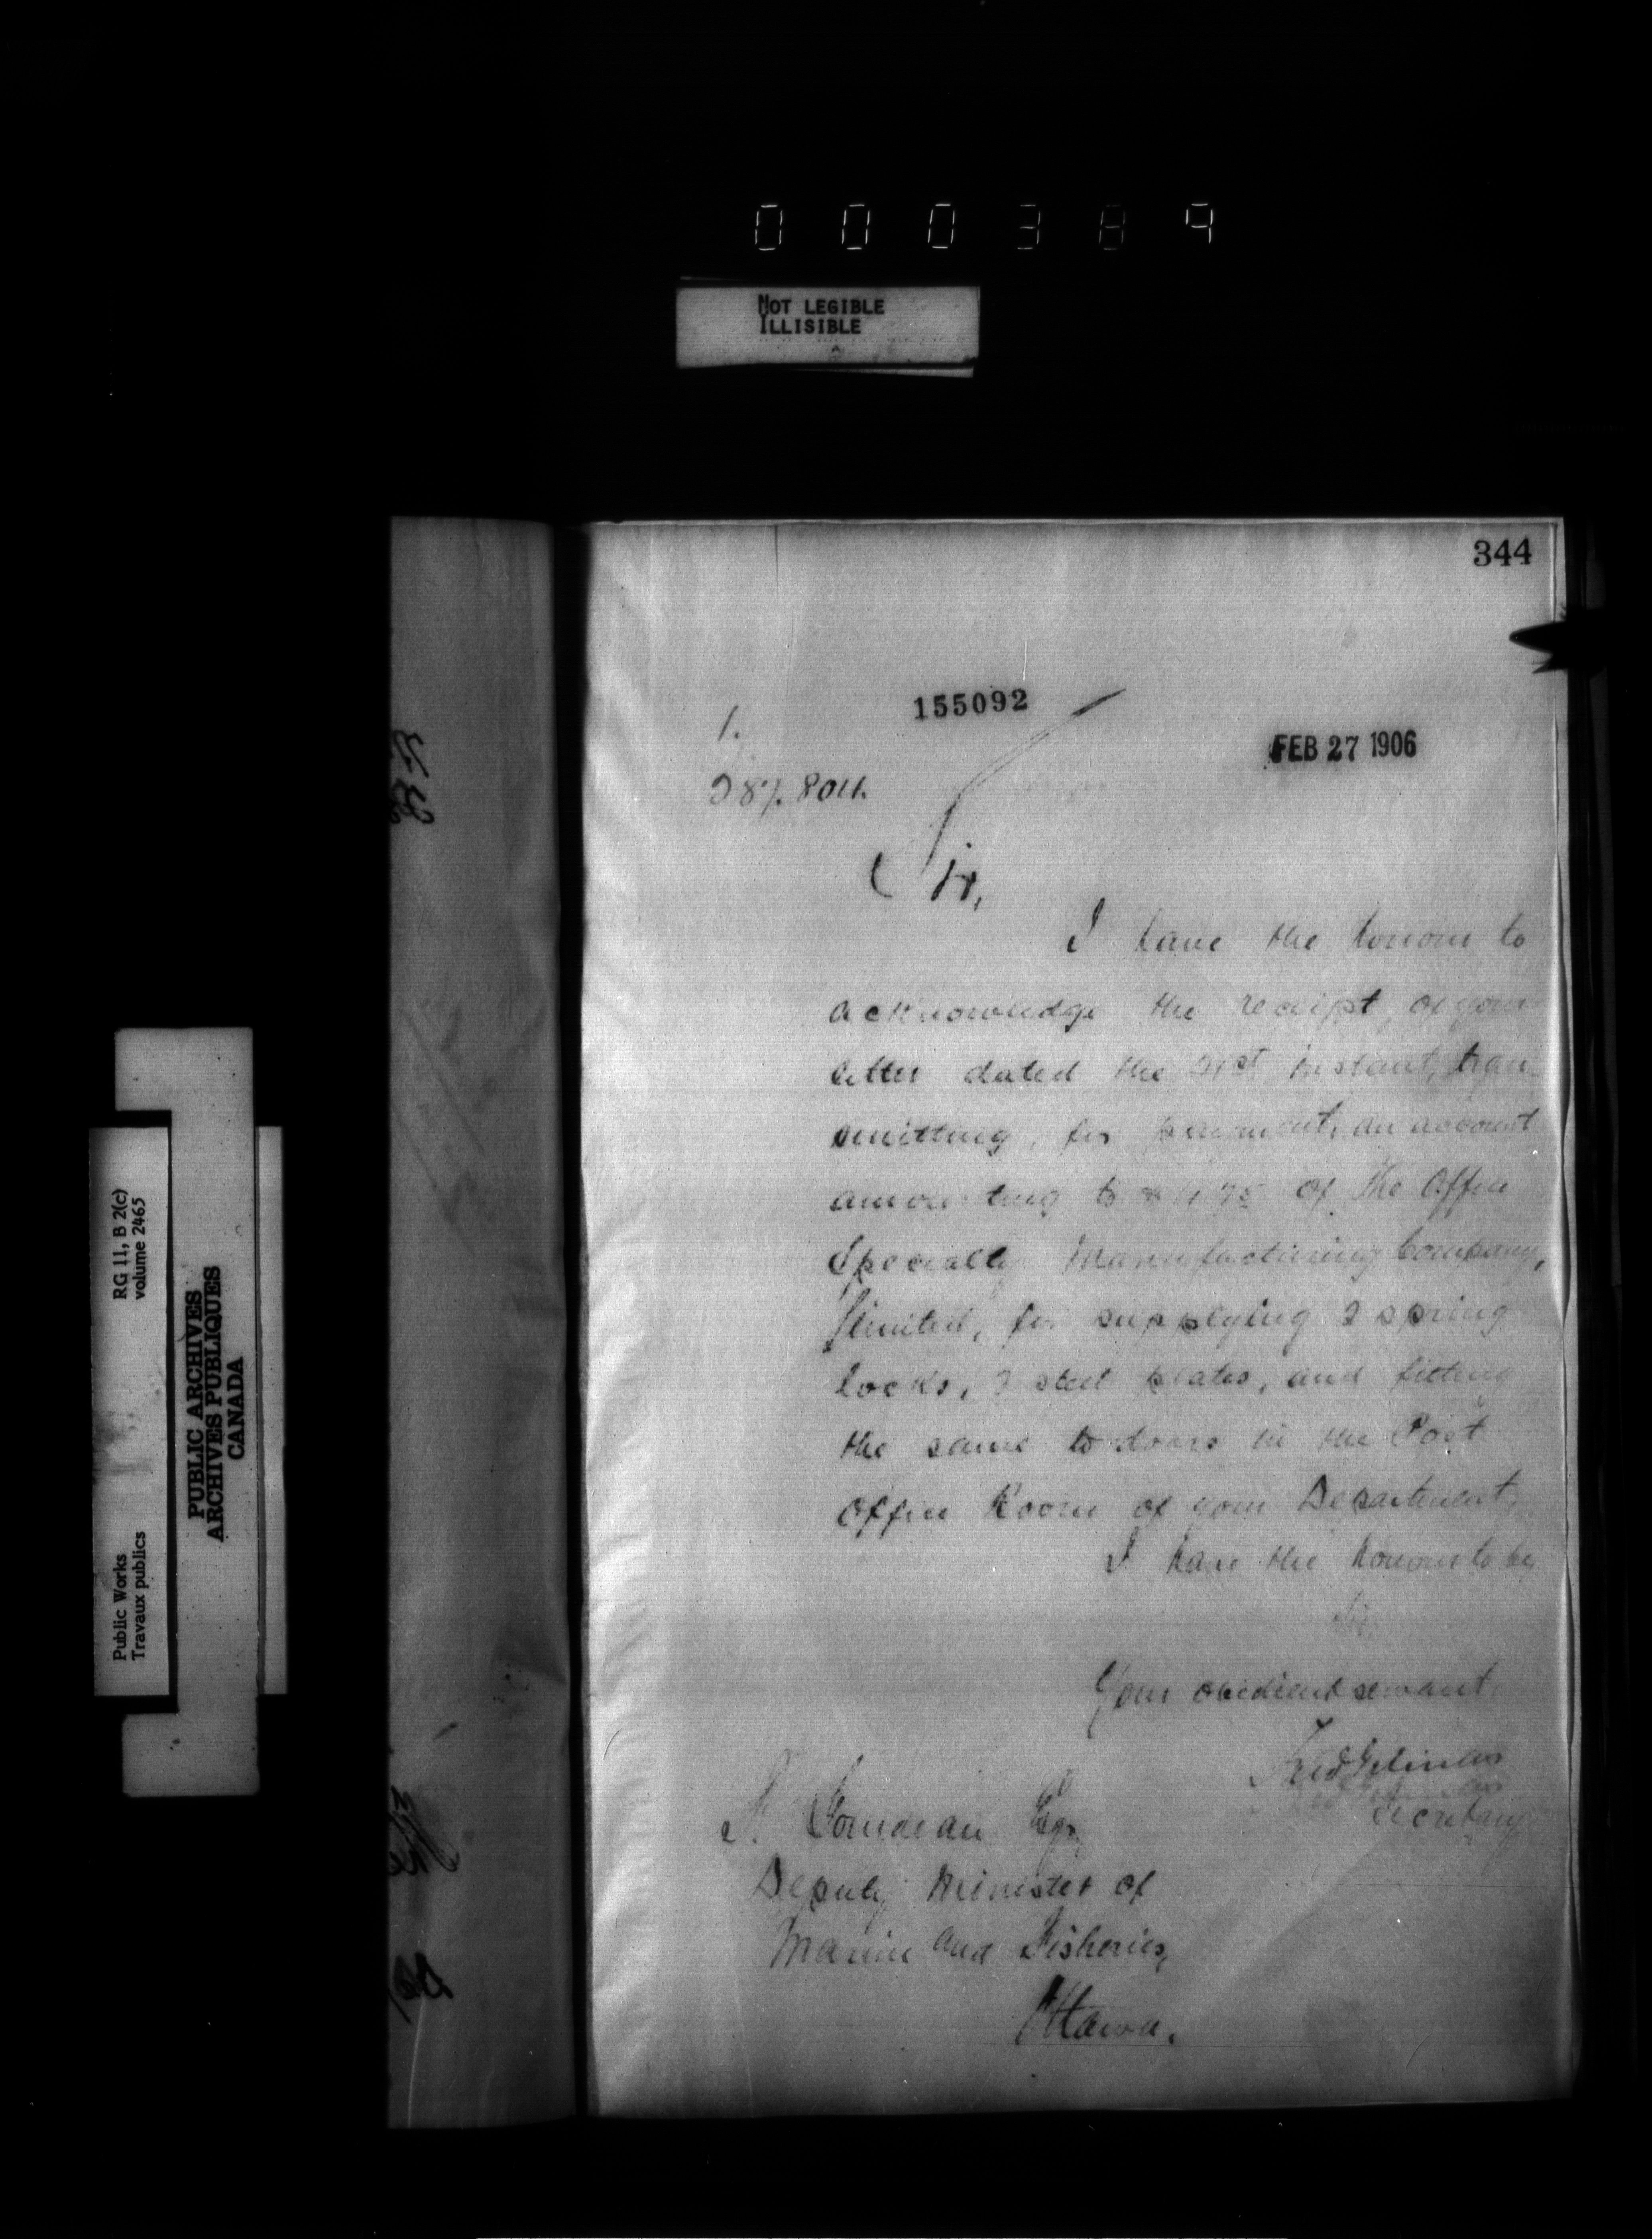 000389
NOT LEGIBLE
ILLISIBLE
344
155092
1.
FEB 27 1906
287.804.
Sir,
I have the honour to
acknowledge the receipt, of your
letter dated the 21st instant, tran-
smitting, for payment, an account
amounting to of The Office
Specialty Manufacturing Company,
limited, for supplying 2 spring
locks, 2 steel plates, and fitting
the same to doors in the Post
Office Room of your Department.
I have the honour to be,
Sir,
Your obedient servant,
Fred Gélinas
Secretary
F. Gourdeau Esq,
Deputy Minister of
Marine and Fisheries,
Ottawa.
RG 11, B 2(c)
volume 2465
PUBLIC ARCHIVES
ARCHIVES PUBLIQUES
CANADA
Public Works
Travaux publics